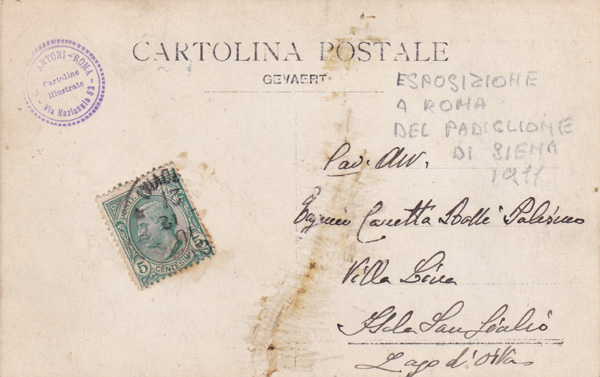 CARTOLINA POSTALE
GEVAERT
ANTONI - ROMA
Cartoline
illustrate
Via Nazionale 63
ESPOSIZIONE
A ROMA
DEL PADIGLIONE
DI SIENA
1911
5
CENTESIMI
Cav. Avv.
Caretta Palermo
Villa Lina
Isola San Giulio
Lago d'Orta